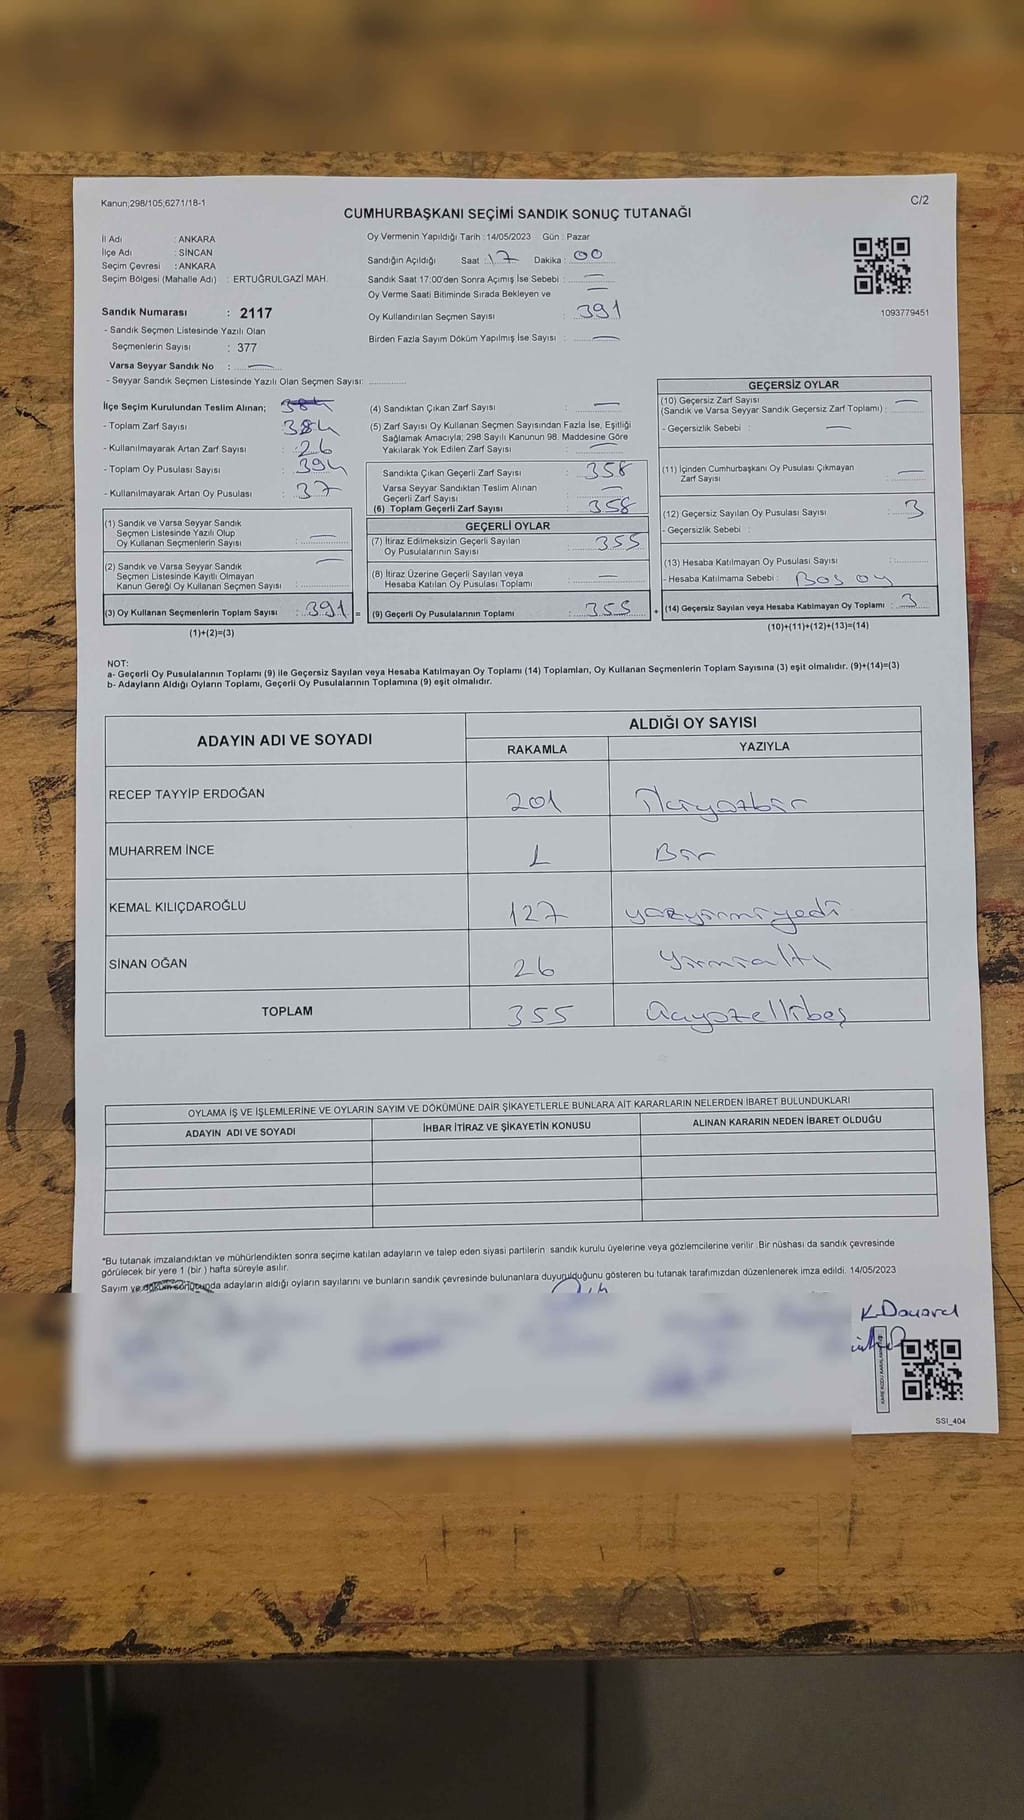 Kanun,298/105,6271/18-1
C/2
CUMHURBAŞKANI SEÇİMİ SANDIK SONUÇ TUTANAĞI
İl Adı : ANKARA
İlçe Adı : SİNCAN
Seçim Çevresi : ANKARA
Seçim Bölgesi (Mahalle Adı) : ERTUĞRULGAZİ MAH.
Oy Vermenin Yapıldığı Tarih : 14/05/2023 Gün : Pazar
Sandığın Açıldığı Saat : 17 Dakika : 00
Sandık Saat 17:00'den Sonra Açımış İse Sebebi : —
Oy Verme Saati Bitiminde Sırada Bekleyen ve —
Oy Kullandırılan Seçmen Sayısı : 391
Birden Fazla Sayım Döküm Yapılmış İse Sayısı : —
1093779451
Sandık Numarası : 2117
- Sandık Seçmen Listesinde Yazılı Olan
Seçmenlerin Sayısı : 377
Varsa Seyyar Sandık No : —
- Seyyar Sandık Seçmen Listesinde Yazılı Olan Seçmen Sayısı:
İlçe Seçim Kurulundan Teslim Alınan;
- Toplam Zarf Sayısı : 384
- Kullanılmayarak Artan Zarf Sayısı : 26
- Toplam Oy Pusulası Sayısı : 394
- Kullanılmayarak Artan Oy Pusulası : 37
(1) Sandık ve Varsa Seyyar Sandık
Seçmen Listesinde Yazılı Olup
Oy Kullanan Seçmenlerin Sayısı : —
(2) Sandık ve Varsa Seyyar Sandık —
Seçmen Listesinde Kayıtlı Olmayan
Kanun Gereği Oy Kullanan Seçmen Sayısı :
(3) Oy Kullanan Seçmenlerin Toplam Sayısı : 391 =
(1)+(2)=(3)
(4) Sandıktan Çıkan Zarf Sayısı : —
(5) Zarf Sayısı Oy Kullanan Seçmen Sayısından Fazla İse, Eşitliği
Sağlamak Amacıyla; 298 Sayılı Kanunun 98. Maddesine Göre
Yakılarak Yok Edilen Zarf Sayısı : —
Sandıkta Çıkan Geçerli Zarf Sayısı : 358
Varsa Seyyar Sandıktan Teslim Alınan
Geçerli Zarf Sayısı : —
(6) Toplam Geçerli Zarf Sayısı : 358
GEÇERLİ OYLAR
(7) İtiraz Edilmeksizin Geçerli Sayılan
Oy Pusulalarının Sayısı : 355
(8) İtiraz Üzerine Geçerli Sayılan veya
Hesaba Katılan Oy Pusulası Toplamı : —
(9) Geçerli Oy Pusulalarının Toplamı : 355 +
GEÇERSİZ OYLAR
(10) Geçersiz Zarf Sayısı
(Sandık ve Varsa Seyyar Sandık Geçersiz Zarf Toplamı) : —
- Geçersizlik Sebebi : —
(11) İçinden Cumhurbaşkanı Oy Pusulası Çıkmayan
Zarf Sayısı : —
(12) Geçersiz Sayılan Oy Pusulası Sayısı : 3
- Geçersizlik Sebebi :
(13) Hesaba Katılmayan Oy Pusulası Sayısı :
- Hesaba Katılmama Sebebi : Boş oy
(14) Geçersiz Sayılan veya Hesaba Katılmayan Oy Toplamı : 3
(10)+(11)+(12)+(13)=(14)
NOT:
a- Geçerli Oy Pusulalarının Toplamı (9) ile Geçersiz Sayılan veya Hesaba Katılmayan Oy Toplamı (14) Toplamları, Oy Kullanan Seçmenlerin Toplam Sayısına (3) eşit olmalıdır. (9)+(14)=(3)
b- Adayların Aldığı Oyların Toplamı, Geçerli Oy Pusulalarının Toplamına (9) eşit olmalıdır.
ADAYIN ADI VE SOYADI
ALDIĞI OY SAYISI
RAKAMLA YAZIYLA
RECEP TAYYİP ERDOĞAN 201 İkiyüzbir
MUHARREM İNCE 1 Bir
KEMAL KILIÇDAROĞLU 127 yüzyirmiyedi
SİNAN OĞAN 26 yirmialtı
TOPLAM 355 üçyüzellibeş
OYLAMA İŞ VE İŞLEMLERİNE VE OYLARIN SAYIM VE DÖKÜMÜNE DAİR ŞİKAYETLERLE BUNLARA AİT KARARLARIN NELERDEN İBARET BULUNDUKLARI
ADAYIN ADI VE SOYADI İHBAR İTİRAZ VE ŞİKAYETİN KONUSU ALINAN KARARIN NEDEN İBARET OLDUĞU
*Bu tutanak imzalandıktan ve mühürlendikten sonra seçime katılan adayların ve talep eden siyasi partilerin sandık kurulu üyelerine veya gözlemcilerine verilir .Bir nüshası da sandık çevresinde
görülecek bir yere 1 (bir ) hafta süreyle asılır.
Sayım ve döküm sonucunda adayların aldığı oyların sayılarını ve bunların sandık çevresinde bulunanlara duyurulduğunu gösteren bu tutanak tarafımızdan düzenlenerek imza edildi. 14/05/2023
SSI_404